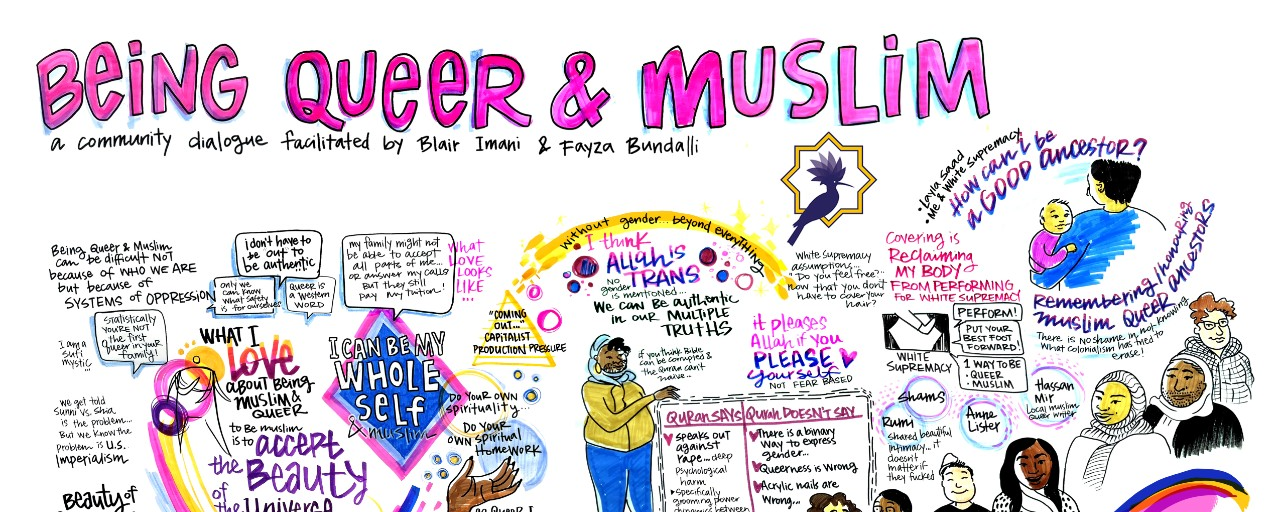 BEING QUEER & MUSLIM
a community dialogue facilitated by Blair Imani & Fayza Bundalli
Being Queer & Muslim
can be difficult NOT
because of WHO WE ARE
but because of
SYSTEMS of OPPRESSION
i don't have to
be out to
be authentic
only we
can know
what safety
is for ourselves
QUEER is
a western
WORD
my family might not
be able to accept
all parts of me...
or answer my calls
But they still
pay my tuition!
what
LOVE
LOOKS
LIKE
...
Statistically
YOU'RE NOT
the first
queer in your
family!
I am a
Sufi
mystic
...
we get told
Sunni vs. Shia
is the problem...
But we know the
problem is U.S.
Imperialism
Beauty of
WHAT I
LOVE
about Being
muslim &
QUEER
to be muslim
is to accept
the Beauty
of the Universe
I CAN BE MY
WHOLE
SELF
& muslim
"COMING
OUT..."
CAPITALIST
PRODUCTION PRESSURE
DO YOUR OWN
spirituality...
DO YOUR
OWN spiritual
HOMEWORK
as Queer
without gender... beyond everything
I think
Allah is
TRANS
NO
gender
is mentioned...
We can Be authentic
in our MULTIPLE
TRUTHS
if you think Bible
can be corrupted &
the Quran can't
naive..
it pleases
Allah if you
PLEASE
yourself
NOT FEAR BASED
QURAN SAYS
speaks out
against
rape... deep
Psychological
harm
specifically
grooming power
dynamics between
Quran DOESN'T SAY
There is a binary
way to express
gender...
Queerness is wrong
Acrylic nails are
wrong...
White supremacy
assumptions...
"Do you feel free?"
now that you don't
have to cover your
hair?
Layla Saad
Me & White Supremacy
How can I be
a GOOD ancestor?
Covering is
Reclaiming
MY BODY
FROM PERFORMING
FOR WHITE SUPREMACY
WHITE
SUPREMACY
PERFORM!
PUT YOUR
BEST FOOT
FORWARD!
1 WAY TO BE
QUEER
MUSLIM
Remembering/honouring
muslim Queer ancestors
There is no shame in not knowing
What colonialism has tried to
erase!
Shams
Rumi
shared beautiful
intimacy... it
doesn't
matter if
they fucked
Anne
Lister
Hassan
Mir
Local muslim
Queer writer